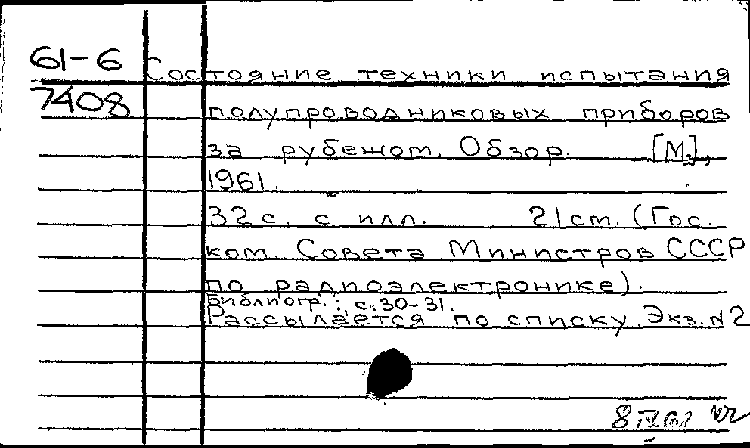 61-6 Состояние техники испытания
7408 полупроводниковых приборов
за рубежом. Обзор. [М.],
1961.
32 с. с илл. 21 см. (Гос.
ком. Совета Министров СССР
по радиоэлектронике).
Библиогр.: с. 30-31.
Рассылается по списку. Экз. №2
8 IV 61